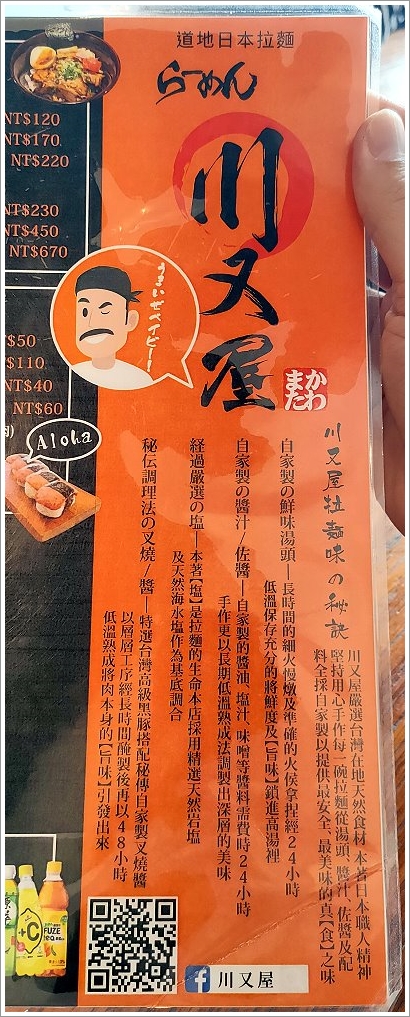 道地日本拉麵
らーめん
川又屋
かわ
また
うまいぜベイビー!
NT$120
NT$170
NT$220
NT$230
NT$450
NT$670
$50
$110
NT$40
NT$60
Aloha
川又屋拉麵味の秘訣
川又屋嚴選台灣在地天然食材 本著日本職人精神
堅持用心手作每一碗拉麵從湯頭、醬汁 佐醬及配
料全採自家製以提供最安全、最美味的真【食】之味
自家製の鮮味湯頭—長時間的細火慢燉及準確的火侯拿捏經24小時
低溫保存充分的將鮮度及【旨味】鎖進高湯裡
自家製の醬汁/佐醬—自家製的醬油、塩汁、味噌等醬料需費時24小時
手作更以長期低溫熟成法調製出深層的美味
経過嚴選の塩—本著【塩】是拉麵的生命本店採用精選天然岩塩
及天然海水塩作為基底調合
秘伝調理法の叉燒/醬—特選台灣高級黑豚搭配秘傳自家製叉燒醬
以層層工序經長時間醃製後再以48小時
低溫熟成將肉本身的【旨味】引發出來
+C
FUZE
tea
f 川又屋